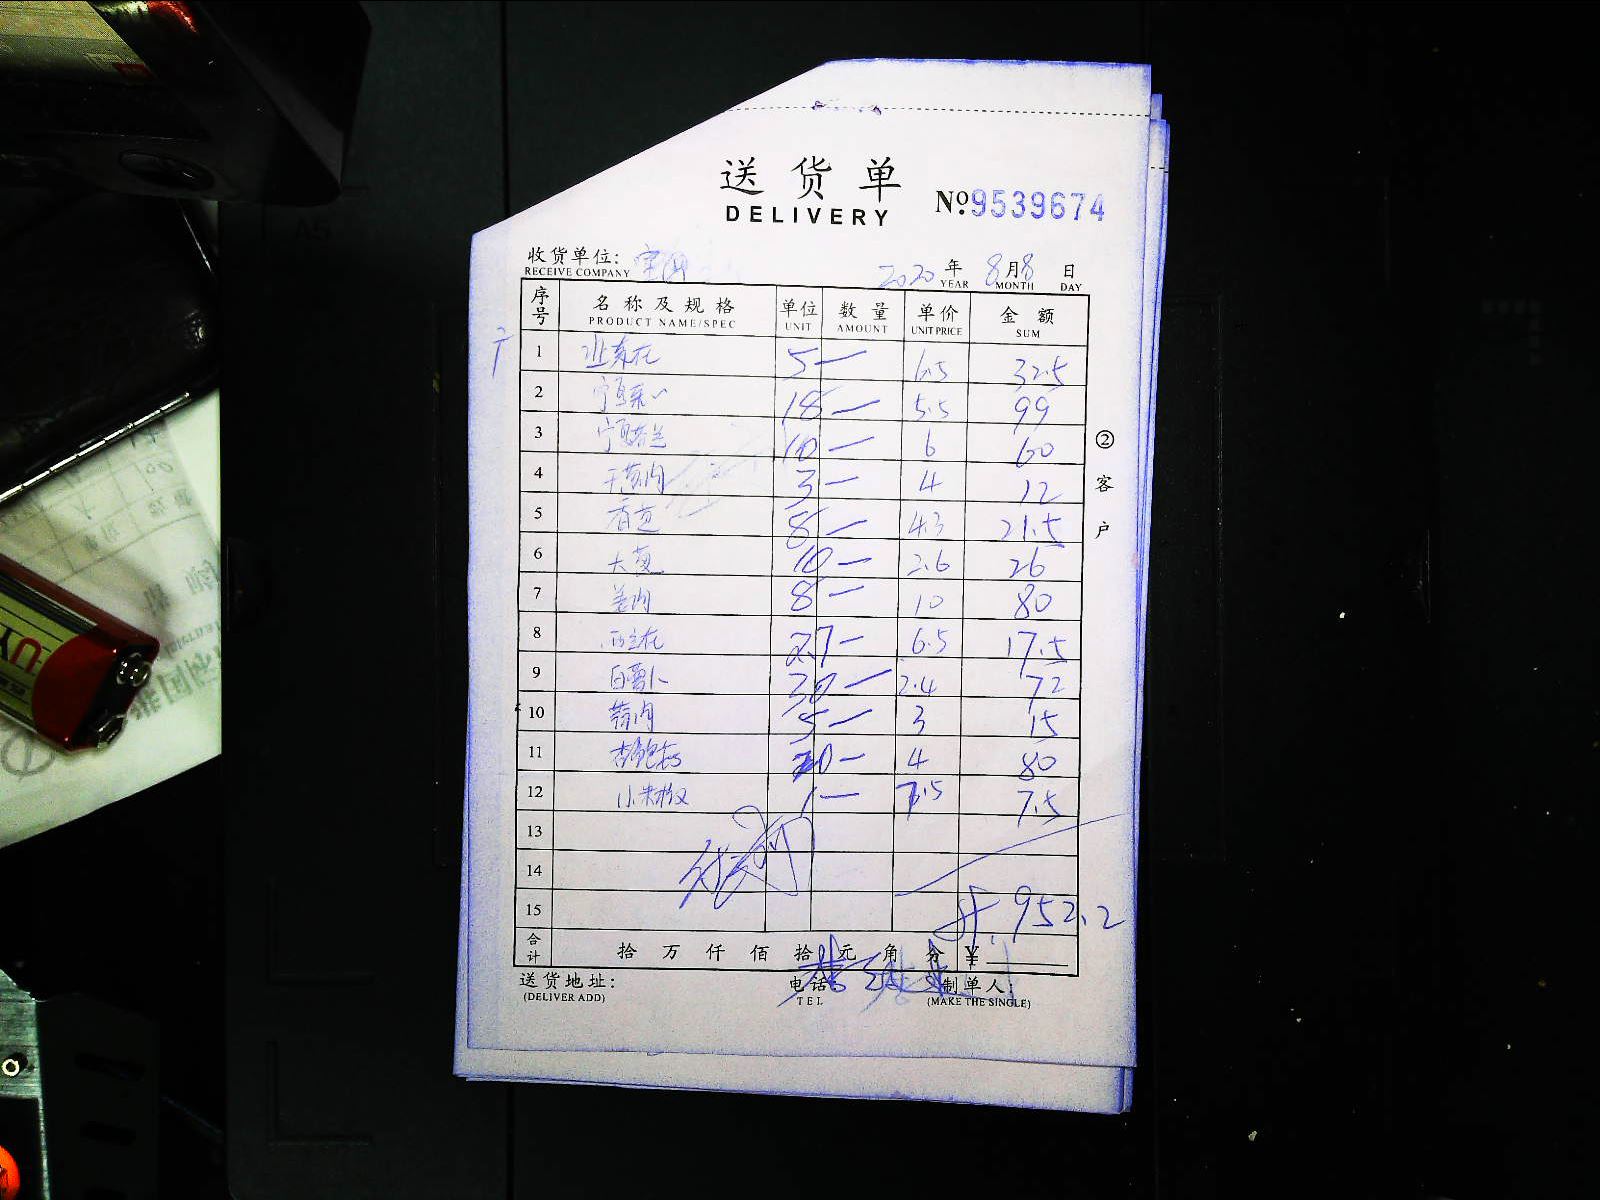 送货单
DELIVERY
No.9539674
收货单位:
RECEIVE COMPANY
2020 年 8 月 8 日
YEAR MONTH DAY
序号 名称及规格 单位 数量 单价 金额
PRODUCT NAME/SPEC UNIT AMOUNT UNIT PRICE SUM
1 5 — 6.5 32.5
2 宁夏菜心 18 — 5.5 99
3 宁夏芥兰 10 — 6 60
4 干葱肉 3 — 4 12
5 香芹 — 4.3 21.5
6 大葱 10 — 2.6 26
7 姜肉 8 — 10 80
8 西兰花 2.7 — 6.5 17.5
9 白萝卜 30 — 2.4 72
10 蒜肉 5 — 3 15
11 杏鲍菇 20 — 4 80
12 小米椒 1 — 7.5 7.5
13
14
15 952.2
合计 拾 万 仟 佰 拾 元 角 分 ¥
送货地址: 电话 制单人:
(DELIVER ADD) TEL (MAKE THE SINGLE)
② 客户